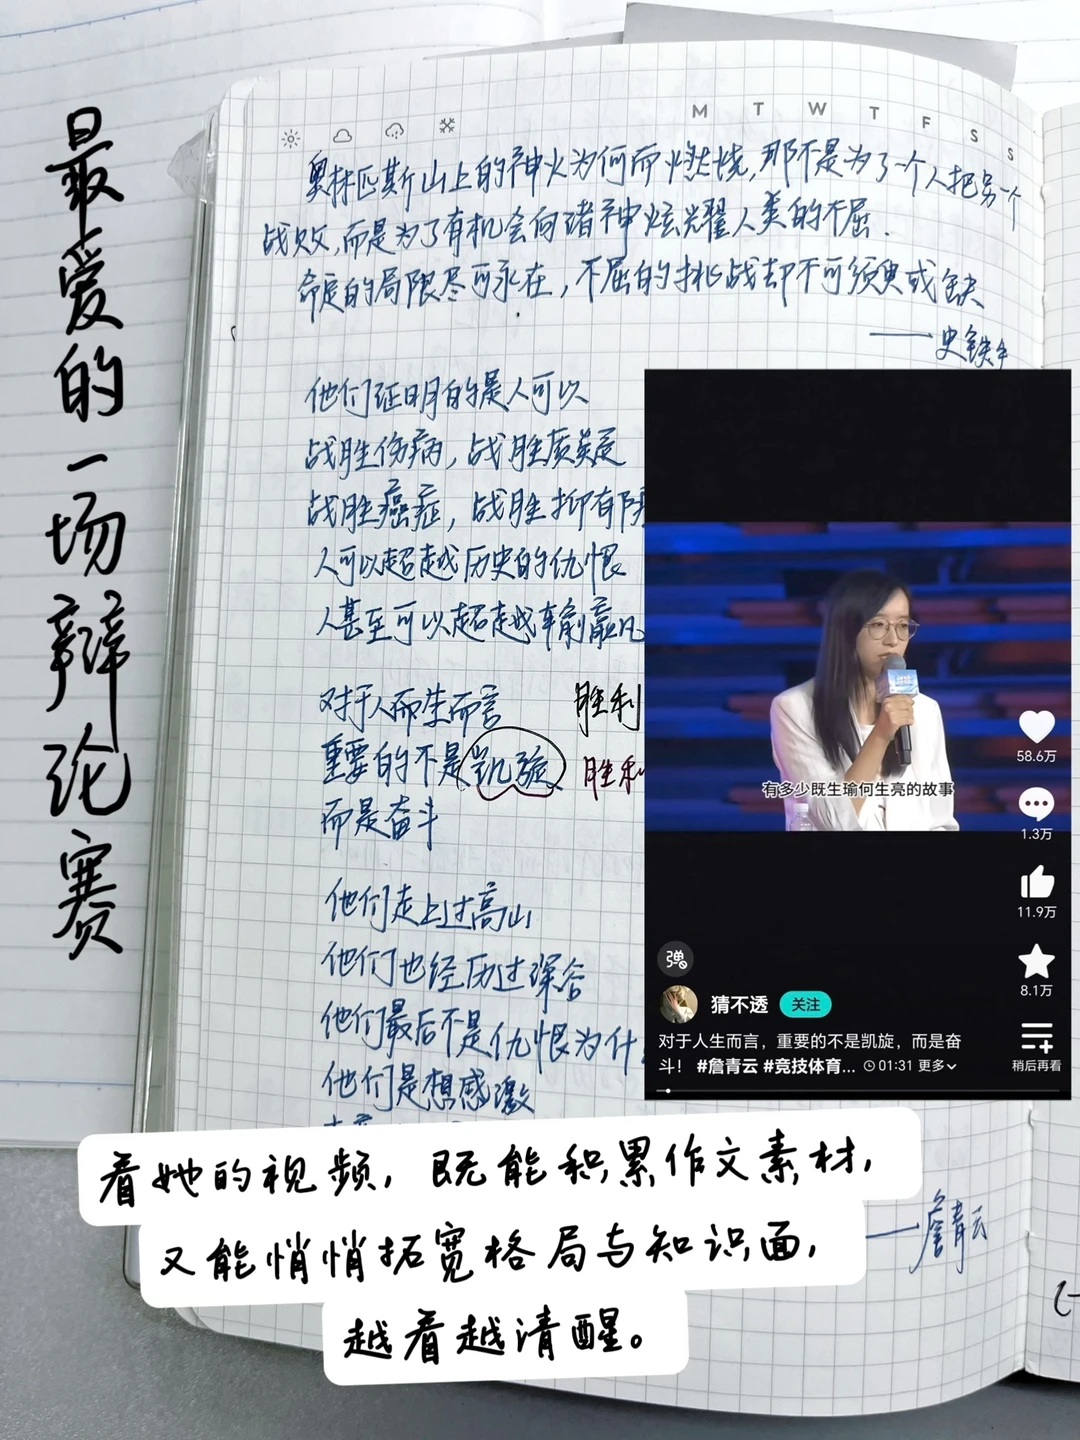 最爱的一场辩论赛
M T W T F S S
奥林匹斯山上的神火为何而燃烧,那不是为了一个人把另一个
战败,而是为了有机会向诸神炫耀人类的不屈.
命定的局限尽可永在,不屈的挑战却不可须臾或缺
——史铁生
他们证明的是人可以
战胜伤病,战胜质疑
战胜癌症,战胜抑郁
人可以超越历史的仇恨
人甚至可以超越输赢
对于人而生而言
胜利
重要的不是凯旋
胜利
而是奋斗
他们走上过高山
他们也经历过深谷
他们最后不是仇恨为什
他们是想感激
有多少既生瑜何生亮的故事
58.6万
1.3万
11.9万
8.1万
稍后再看
弹
猜不透 关注
对于人生而言,重要的不是凯旋,而是奋
斗! #詹青云 #竞技体育... 01:31 更多
看她的视频,既能积累作文素材,
又能悄悄拓宽格局与知识面,
越看越清醒。
——詹青云